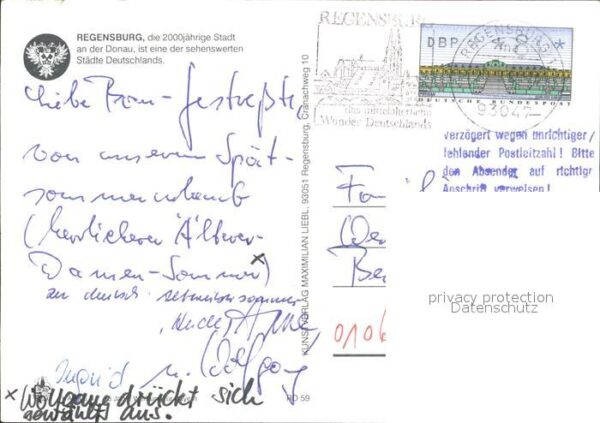 REGENSBURG, die 2000jährige Stadt
an der Donau, ist eine der sehenswerten
Städte Deutschlands.
Liebe
von unserem Spät-
sommerurlaub
(herrlicher Altwei-
Damen-Sommer)
x
zu deutsch:
Ingrid u. Wolfgang
x Wolfgang drückt sich
gewählt aus.
RD 59
KUNSTVERLAG MAXIMILIAN LIEBL, 93051 Regensburg, Cranachweg 10
REGENSBURG
das mittelalterliche
Wunder Deutschlands
REGENSBURG 1
93047
DBP
DEUTSCHE BUNDESPOST
verzögert wegen unrichtiger/
fehlender Postleitzahl! Bitte
den Absender auf richtige
Anschrift verweisen!
Fam
We
Be
0106
privacy protection
Datenschutz